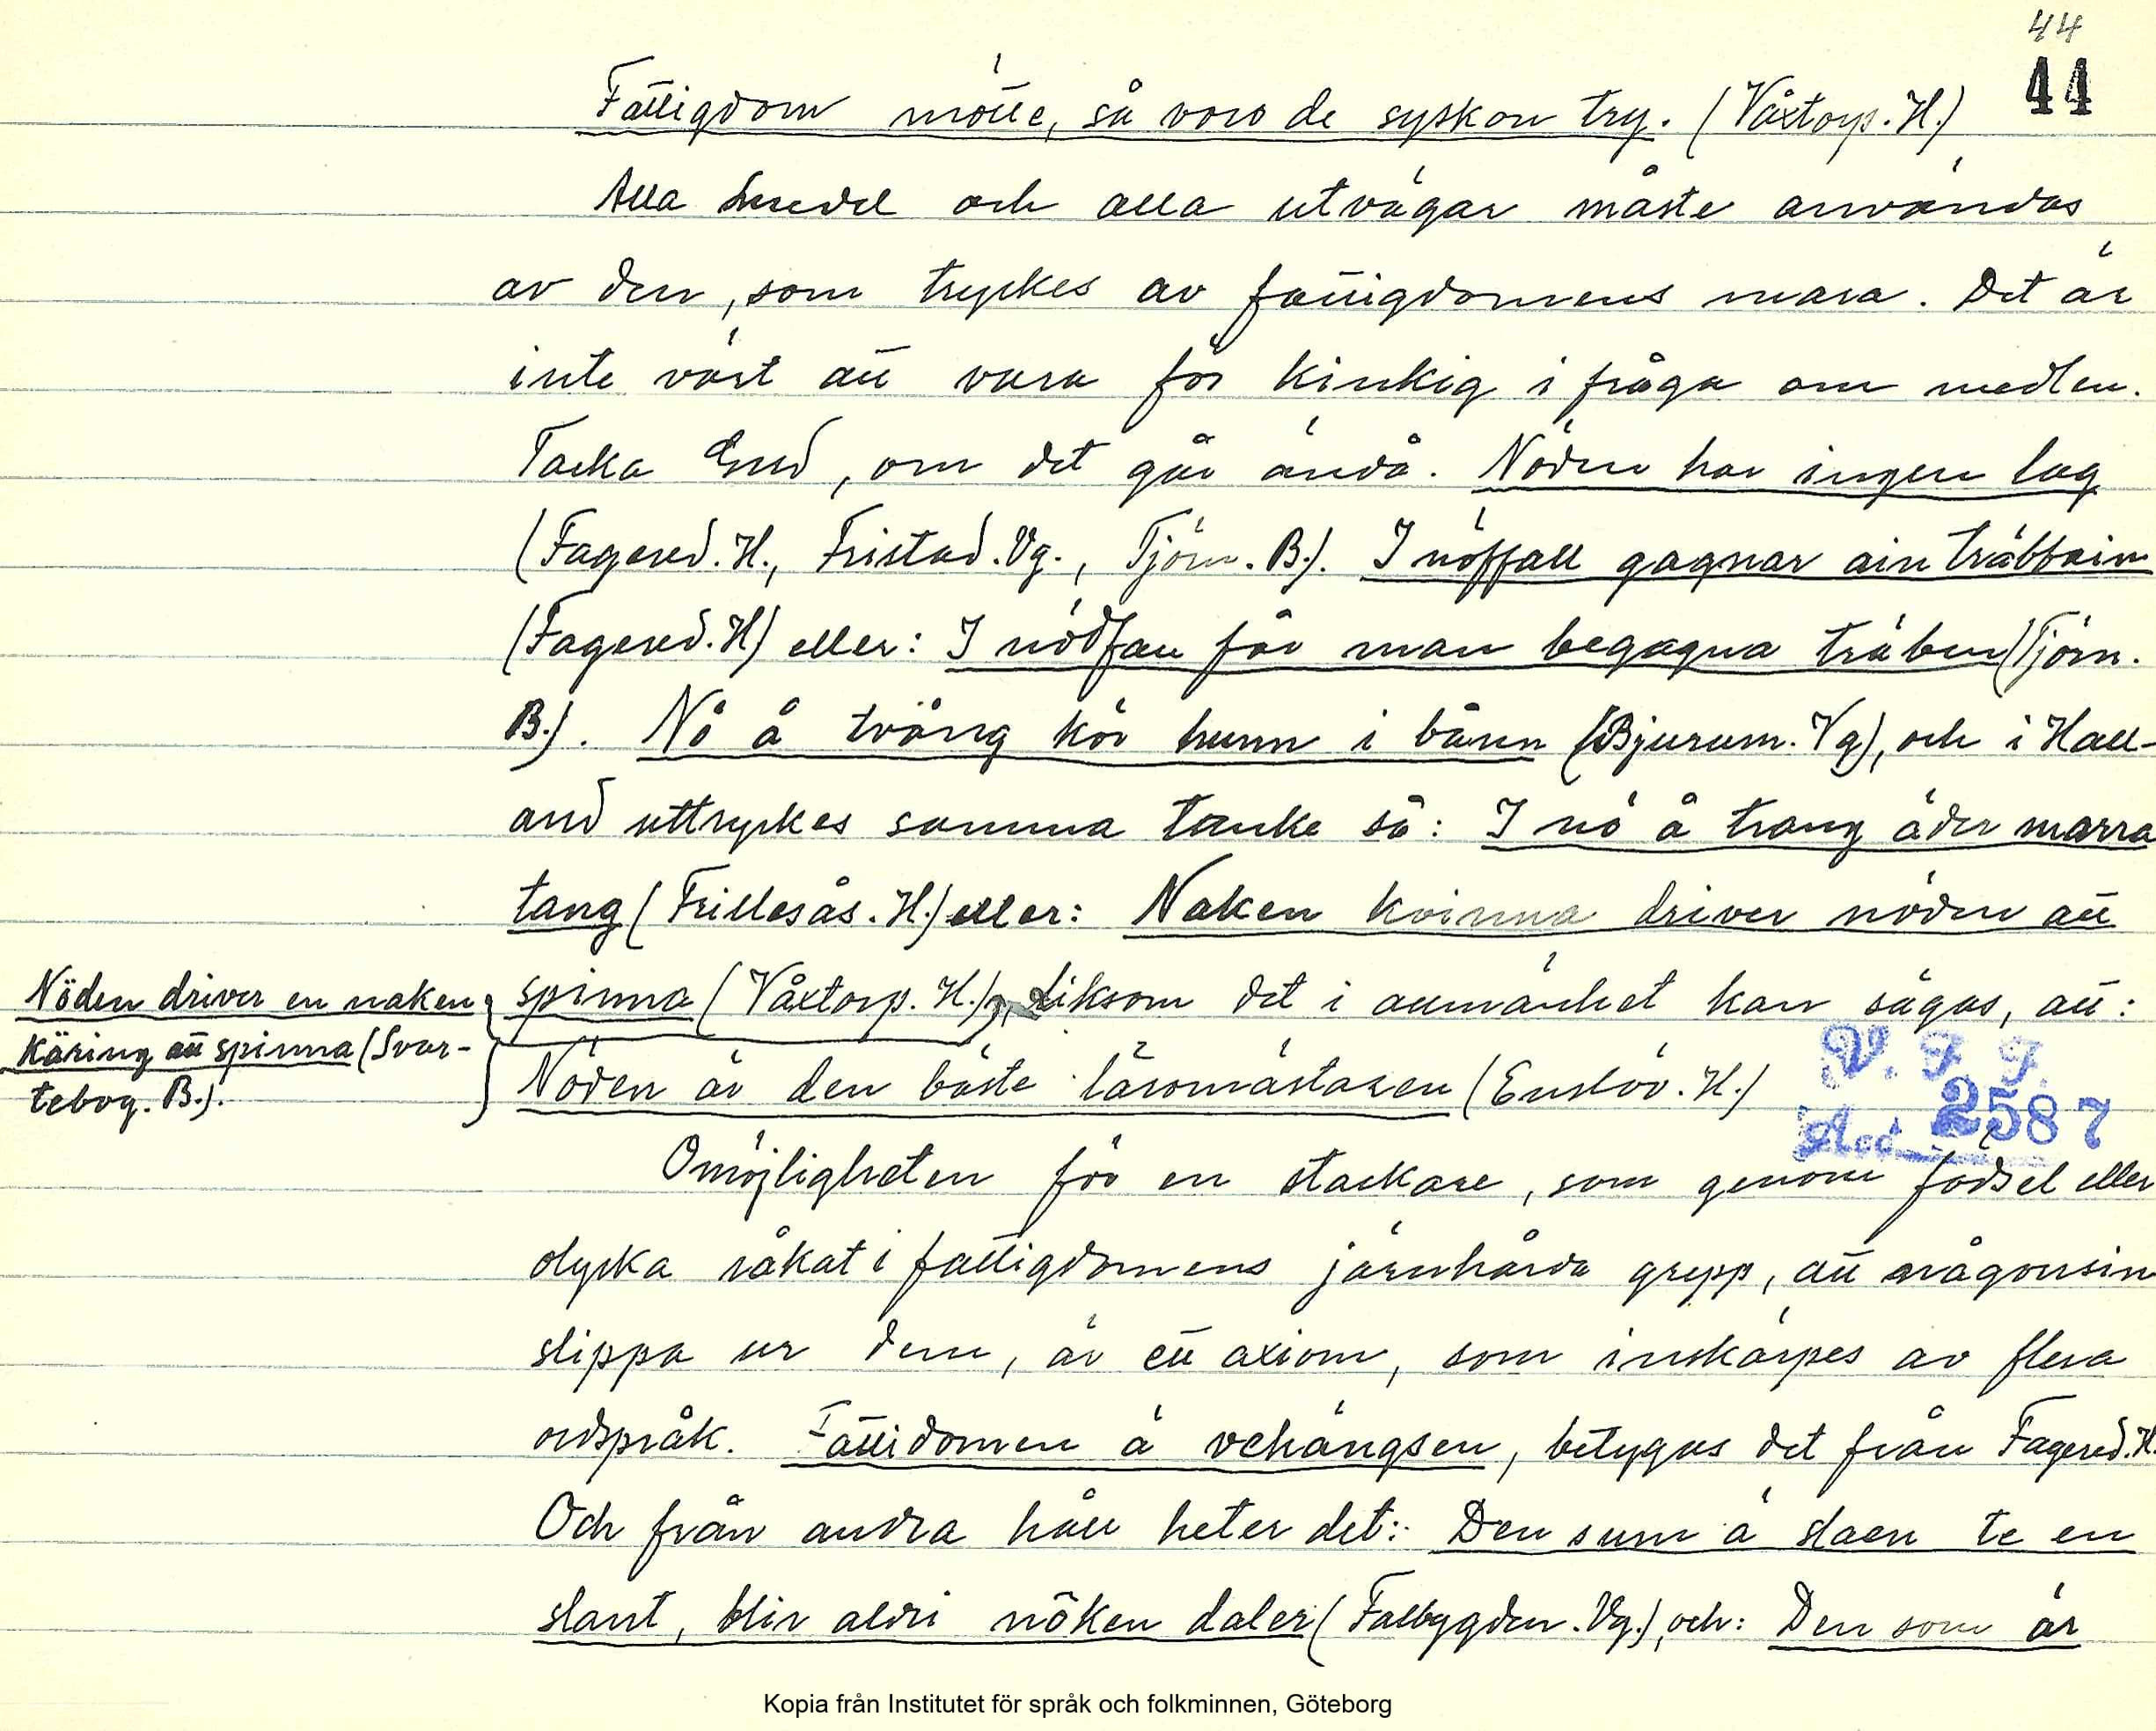 44
44
Fattigdom mötte, så voro de syskon try. (Våxtorp. H.)
Alla medel och alla utvägar måste användas
av den, som tryckes av fattigdomens mara. Det är
inte värt att vara för kinkig i fråga om medlen.
Tacka Gud, om det går ändå. Nöden har ingen lag
(Fagered. H., Fristad. Vg., Tjörn. B.). I nöffall gagnar ain träbbain
(Fagered. H) eller: I nödfall får man begagna träben (Tjörn.
B.). Nö å tvång kör hunn i bånn (Bjurum. Vg), och i Hall-
and uttryckes samma tanke så: I nö å trang äder marra
tang (Frillesås. H.) eller: Naken kvinna driver nöden att
Nöden driver en naken
käring att spinna (Svar-
teborg. B.).
spinna (Våxtorp. H.), liksom det i allmänhet kan sägas, att:
Nöden är den bäste läromästaren (Enslöv. H.)
V. F. F.
Acc. 2587
Omöjligheten för en stackare, som genom födsel eller
olycka råkat i fattigdomens järnhårda grepp, att någonsin
slippa ur dem, är ett axiom, som inskärpes av flera
ordspråk. Fattidomen ä vehängsen, betygas det från Fagered. H.
Och från andra håll heter det: Den sum ä slaen te en
slant, blir aldri nöken daler (Falbygden. Vg.), och: Den som är
Kopia från Institutet för språk och folkminnen, Göteborg